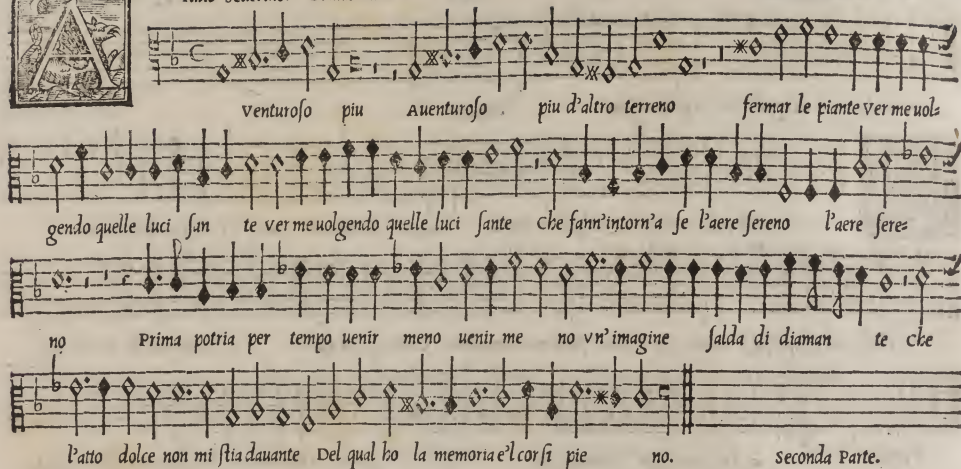 A
Venturoſo piu Auenturoſo . piu d'altro terreno fermar le piante Ver me uol=
gendo quelle luci ſan te ver me uolgendo quelle luci ſante Che fann'intorn'a ſe l'aere ſereno l'aere ſere=
no Prima potria per tempo uenir meno uenir me no vn'imagine ſalda di diaman te Che
l'atto dolce non mi ſtia dauante Del qual ho la memoria e'l cor ſi pie no. Seconda Parte.